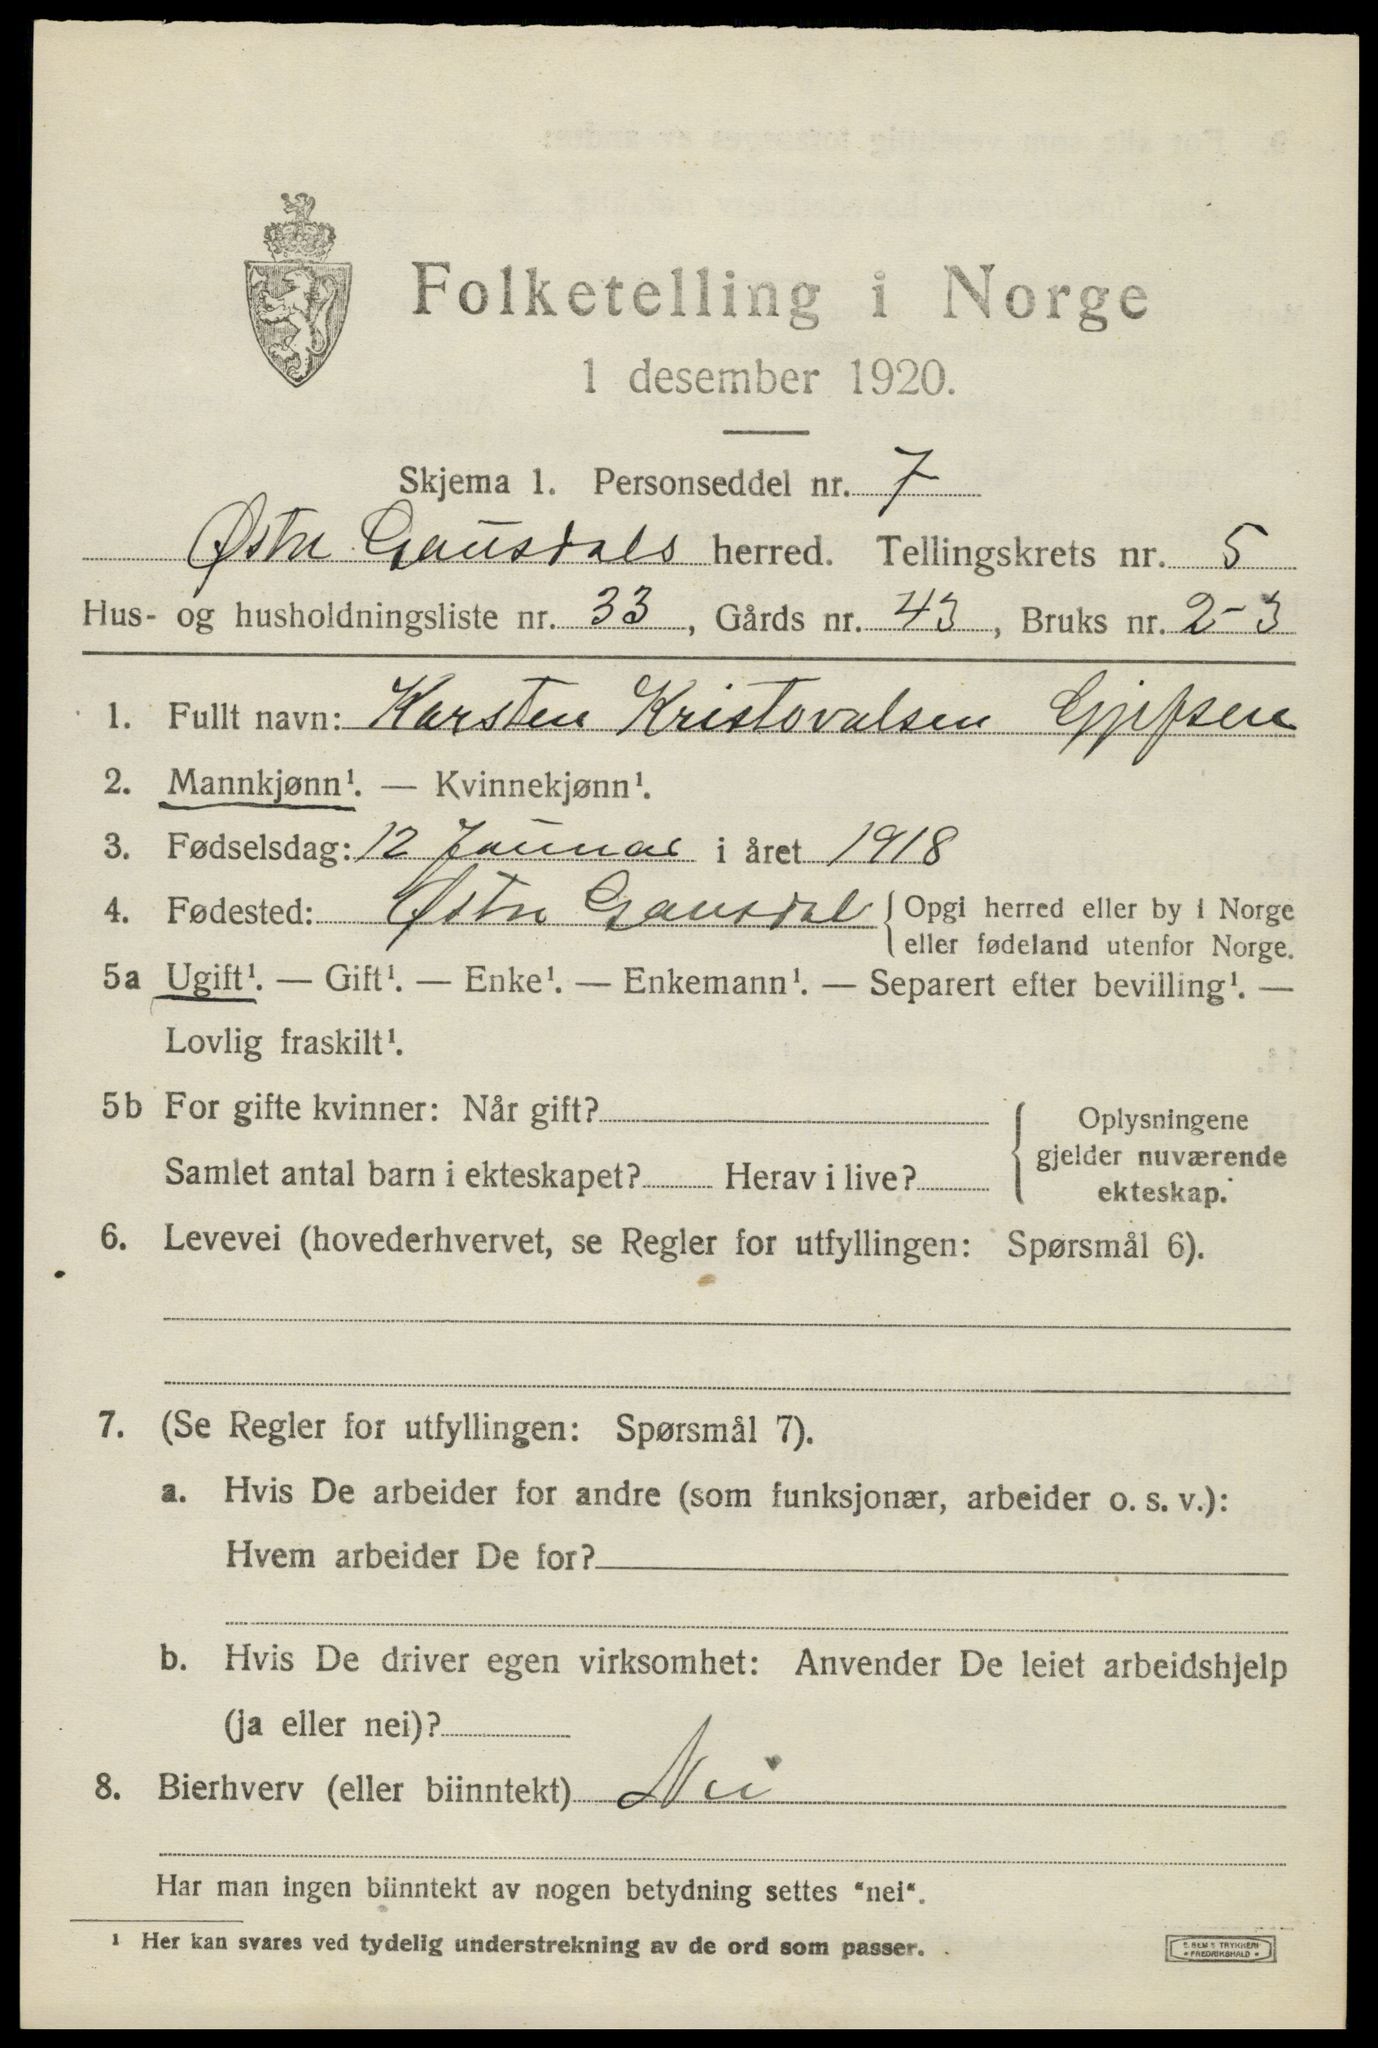 Folketelling i Norge
1 desember 1920.
Skjema 1. Personseddel nr. 7
Østre Gausdals herred. Tellingskrets nr. 5
Hus- og husholdningsliste nr. 33, Gårds nr. 43, Bruks nr. 2-3
1. Fullt navn: Karsten Kristovalsen
2. Mannkjønn¹. — Kvinnekjønn¹.
3. Fødselsdag: 12 Januar i året 1918
4. Fødested: Østre Gausdal { Opgi herred eller by i Norge
eller fødeland utenfor Norge.
5a Ugift¹. — Gift¹. — Enke¹. — Enkemann¹. — Separert efter bevilling¹. —
Lovlig fraskilt¹.
5b For gifte kvinner: Når gift?
Samlet antal barn i ekteskapet? Herav i live?
Oplysningene
gjelder nuværende
ekteskap.
6. Levevei (hovederhvervet, se Regler for utfyllingen: Spørsmål 6).
7. (Se Regler for utfyllingen: Spørsmål 7).
a. Hvis De arbeider for andre (som funksjonær, arbeider o. s. v.):
Hvem arbeider De for?
b. Hvis De driver egen virksomhet: Anvender De leiet arbeidshjelp
(ja eller nei)?
8. Bierhverv (eller biinntekt) Nei
Har man ingen biinntekt av nogen betydning settes "nei".
¹ Her kan svares ved tydelig understrekning av de ord som passer.
TRYKKERI
FREDRIKSHALD